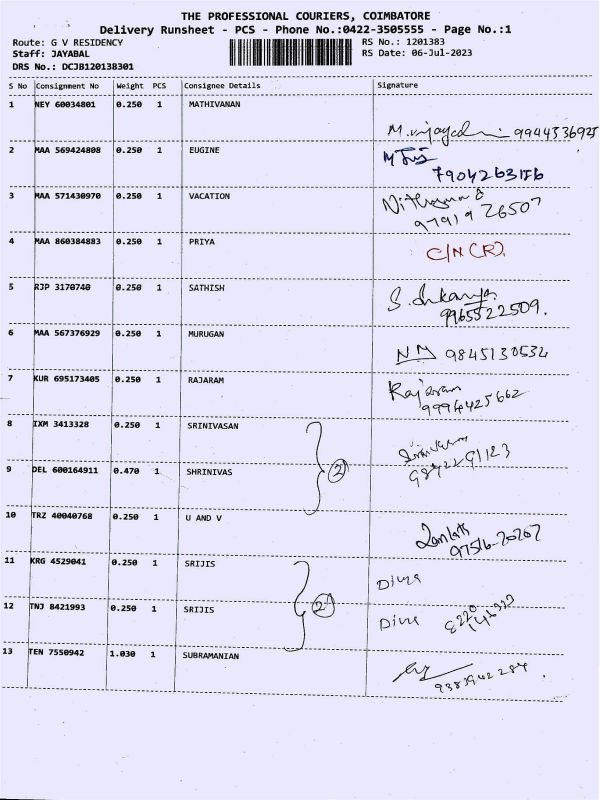 THE PROFESSIONAL COURIERS, COIMBATORE
Delivery Runsheet - PCS - Phone No.:0422-3505555 - Page No.:1
Route: G V RESIDENCY RS No.: 1201383
Staff: JAYABAL RS Date: 06-Jul-2023
DRS No.: DCJB120138301
S No Consignment No Weight PCS Consignee Details Signature
1 NEY 60034801 0.250 1 MATHIVANAN
9944336925
2 MAA 569424808 0.250 1 EUGINE
7904263186
3 MAA 571430970 0.250 1 VACATION
97919 26507
4 MAA 860384883 0.250 1 PRIYA C/N (R).
5 RJP 3170740 0.250 1 SATHISH
9965522509.
6 MAA 567376929 0.250 1 MURUGAN
NM 9845130532
7 KUR 695173405 0.250 1 RAJARAM Rajaram
9994425662
8 IXM 3413328 0.250 1 SRINIVASAN
9 DEL 600164911 0.470 1 SHRINIVAS 2
10 TRZ 40040768 0.250 1 U AND V
97516-20207
11 KRG 4529041 0.250 1 SRIJIS Divya
12 TNJ 8421993 0.250 1 SRIJIS 2 Divya
13 TEN 7550942 1.030 1 SUBRAMANIAN